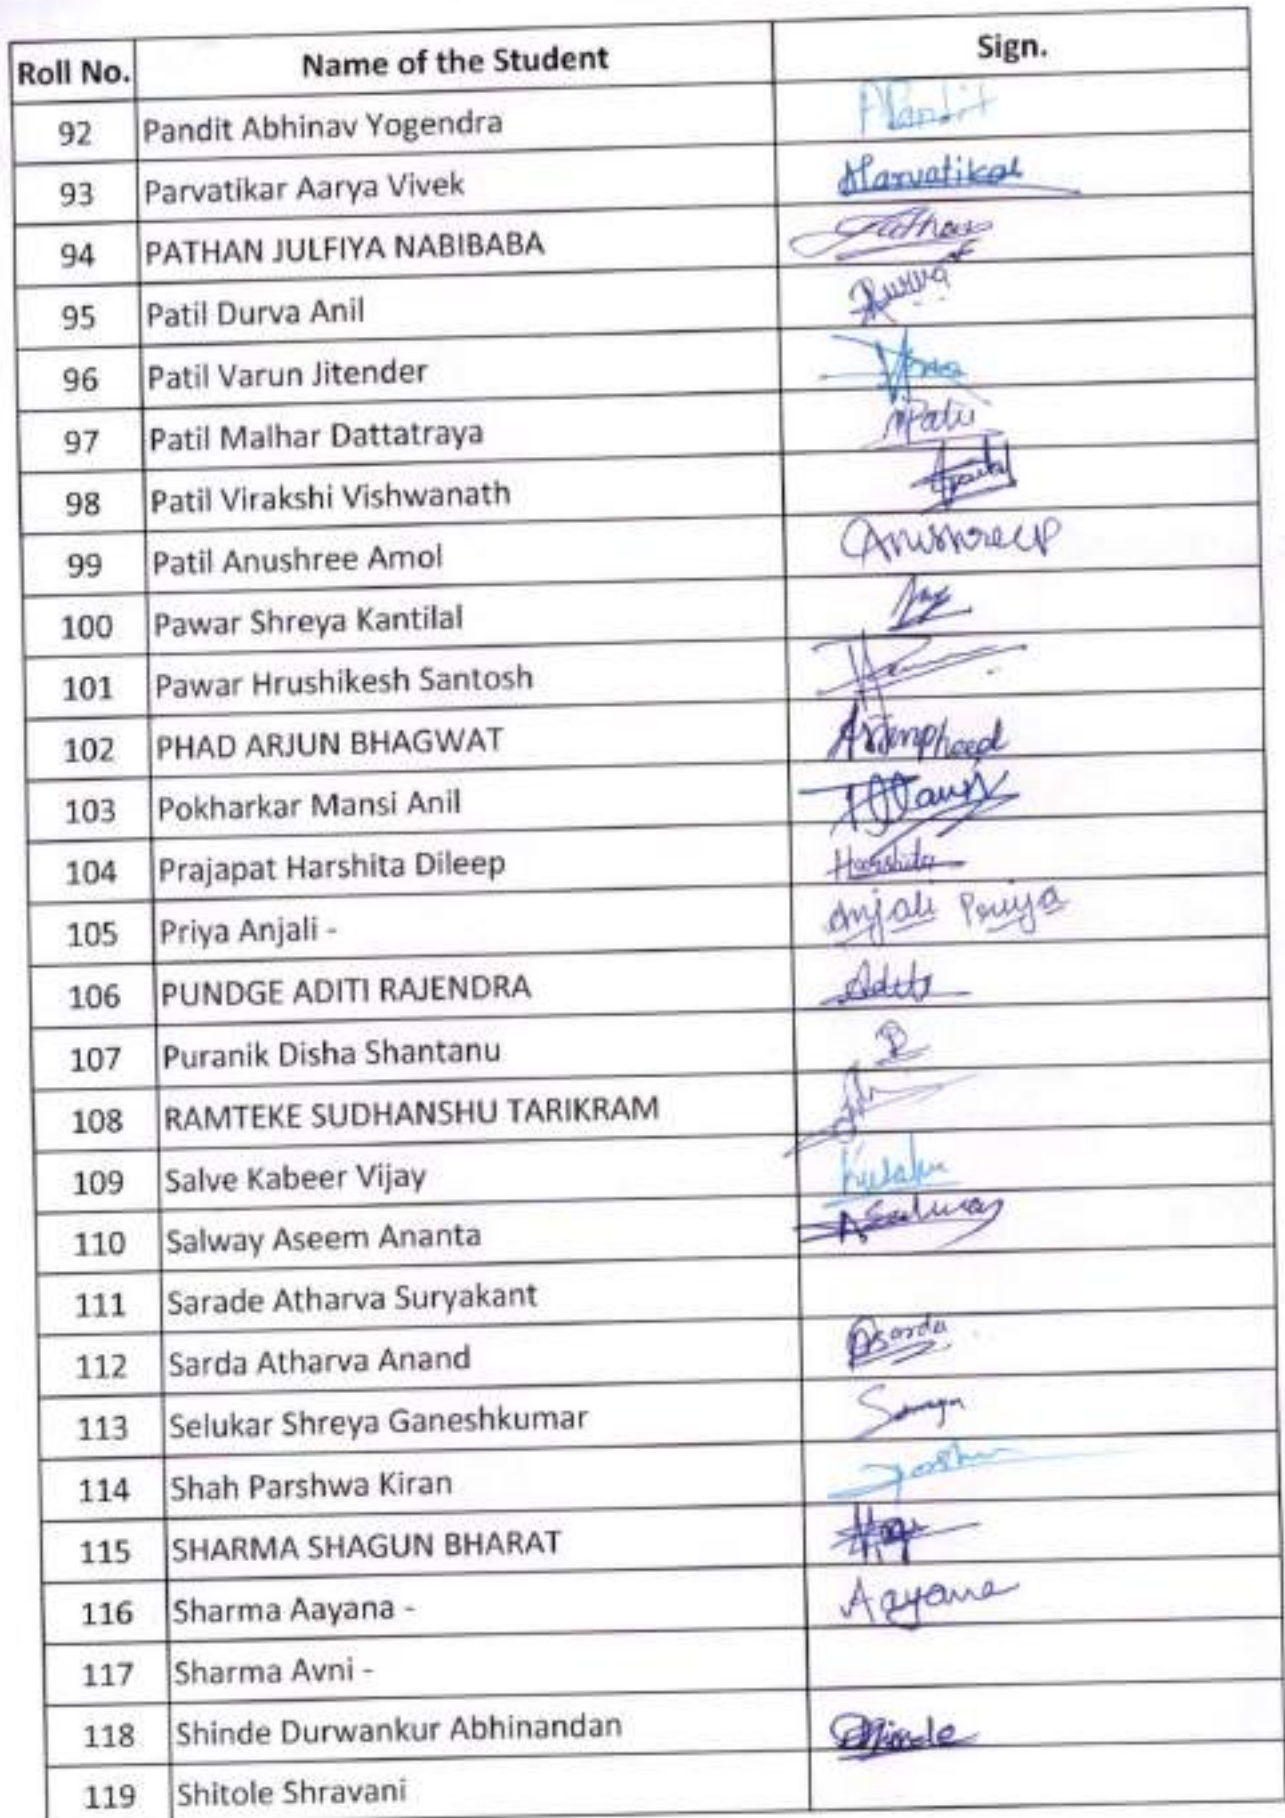 Roll No. Name of the Student Sign.
92 Pandit Abhinav Yogendra APandit
93 Parvatikar Aarya Vivek AParvatikar
94 PATHAN JULFIYA NABIBABA
95 Patil Durva Anil Durva
96 Patil Varun Jitender
97 Patil Malhar Dattatraya
98 Patil Virakshi Vishwanath
99 Patil Anushree Amol AnushreeP
100 Pawar Shreya Kantilal
101 Pawar Hrushikesh Santosh
102 PHAD ARJUN BHAGWAT
103 Pokharkar Mansi Anil
104 Prajapat Harshita Dileep Harshita
105 Priya Anjali - Anjali Priya
106 PUNDGE ADITI RAJENDRA Aditi
107 Puranik Disha Shantanu
108 RAMTEKE SUDHANSHU TARIKRAM
109 Salve Kabeer Vijay
110 Salway Aseem Ananta ASalway
111 Sarade Atharva Suryakant
112 Sarda Atharva Anand Asarda
113 Selukar Shreya Ganeshkumar
114 Shah Parshwa Kiran
115 SHARMA SHAGUN BHARAT
116 Sharma Aayana - Aayana
117 Sharma Avni -
118 Shinde Durwankur Abhinandan DShinde
119 Shitole Shravani